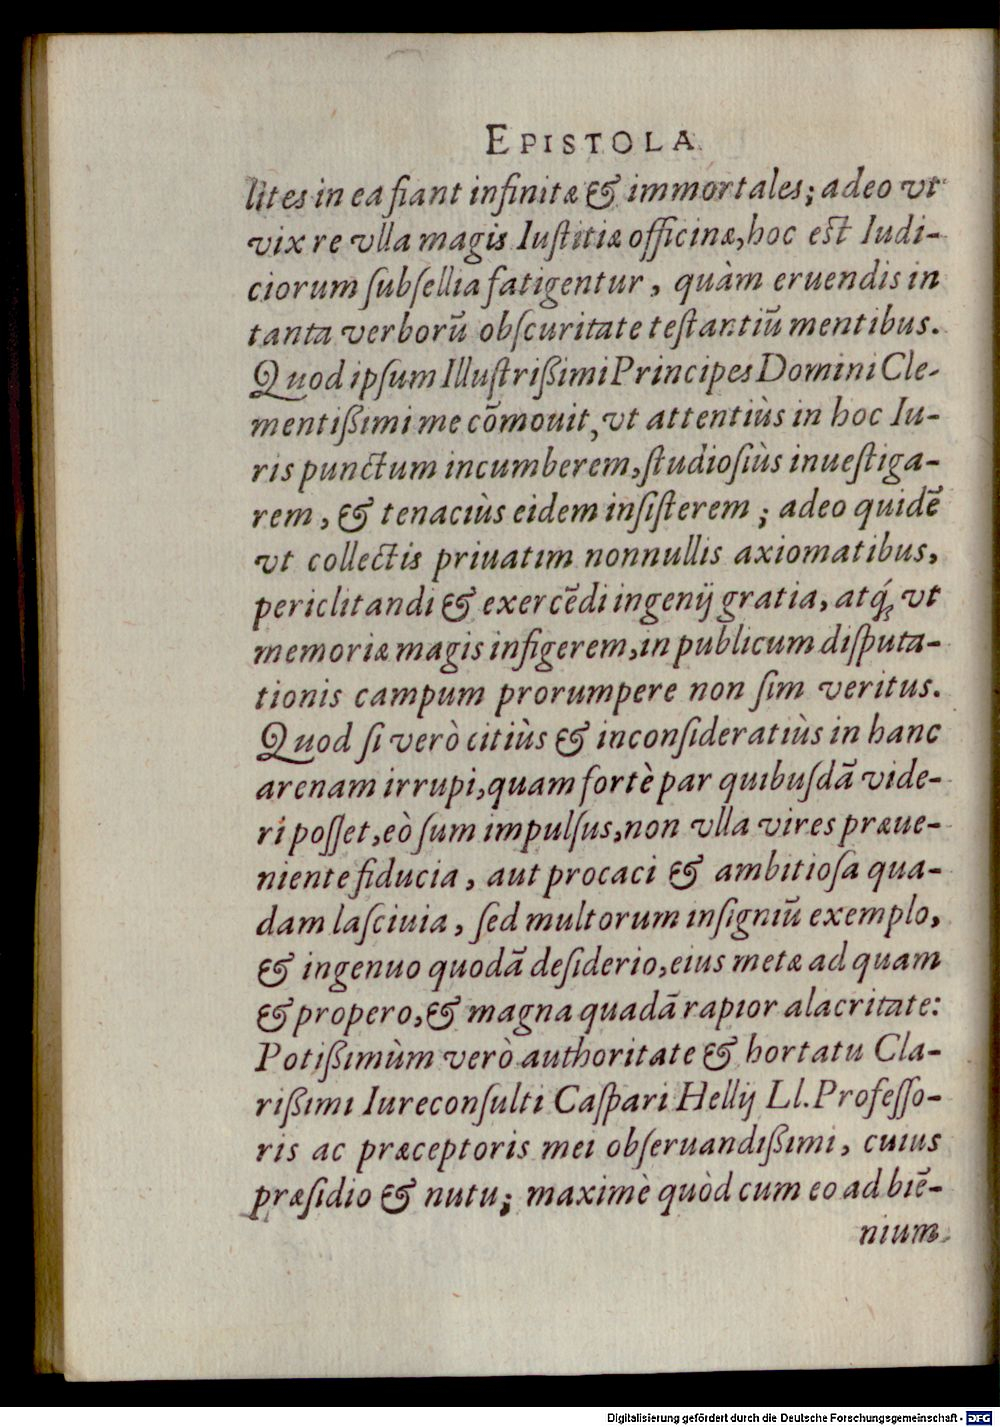 EPISTOLA.
lites in ea fiant infinitæ & immortales; adeo vt
vix re vlla magis Iuſtitiæ officinæ, hoc eſt Iudi-
ciorum ſubſellia fatigentur, quàm eruendis in
tanta verborũ obſcuritate teſtantiũ mentibus.
Quod ipſum Illuſtrißimi Principes Domini Cle-
mentißimi me cõmouit, vt attentiùs in hoc Iu-
ris punctum incumberem, ſtudioſiùs inueſtiga-
rem, & tenaciùs eidem inſiſterem; adeo quidẽ
vt collectis priuatim nonnullis axiomatibus,
periclitandi & exercẽdi ingenij gratia, atq́; vt
memoriæ magis infigerem, in publicum diſputa-
tionis campum prorumpere non ſim veritus.
Quod ſi verò citiùs & inconſideratiùs in hanc
arenam irrupi, quam fortè par quibuſdã vide-
ri poſſet, eò ſum impulſus, non vlla vires præue-
niente fiducia, aut procaci & ambitioſa qua-
dam laſciuia, ſed multorum inſigniũ exemplo,
& ingenuo quodã deſiderio, eius metæ ad quam
& propero, & magna quadã rapior alacritate:
Potißimùm verò authoritate & hortatu Cla-
rißimi Iureconſulti Caſpari Hellij Ll. Profeſſo-
ris ac præceptoris mei obſeruandißimi, cuius
præſidio & nutu; maximè quòd cum eo ad biẽ-
nium
Digitalisierung gefördert durch die Deutsche Forschungsgemeinschaft - DFG